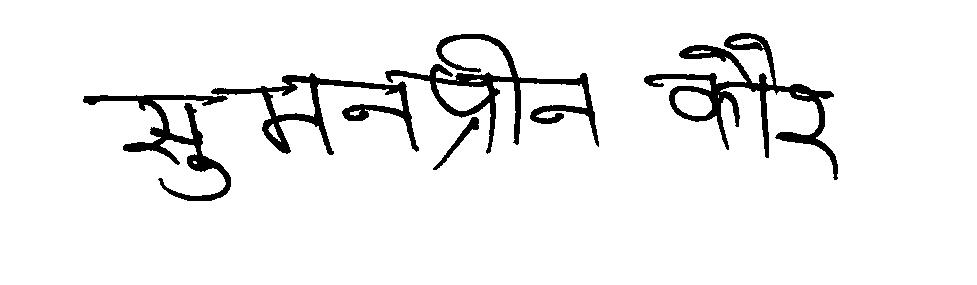 सुमनप्रीन कौर